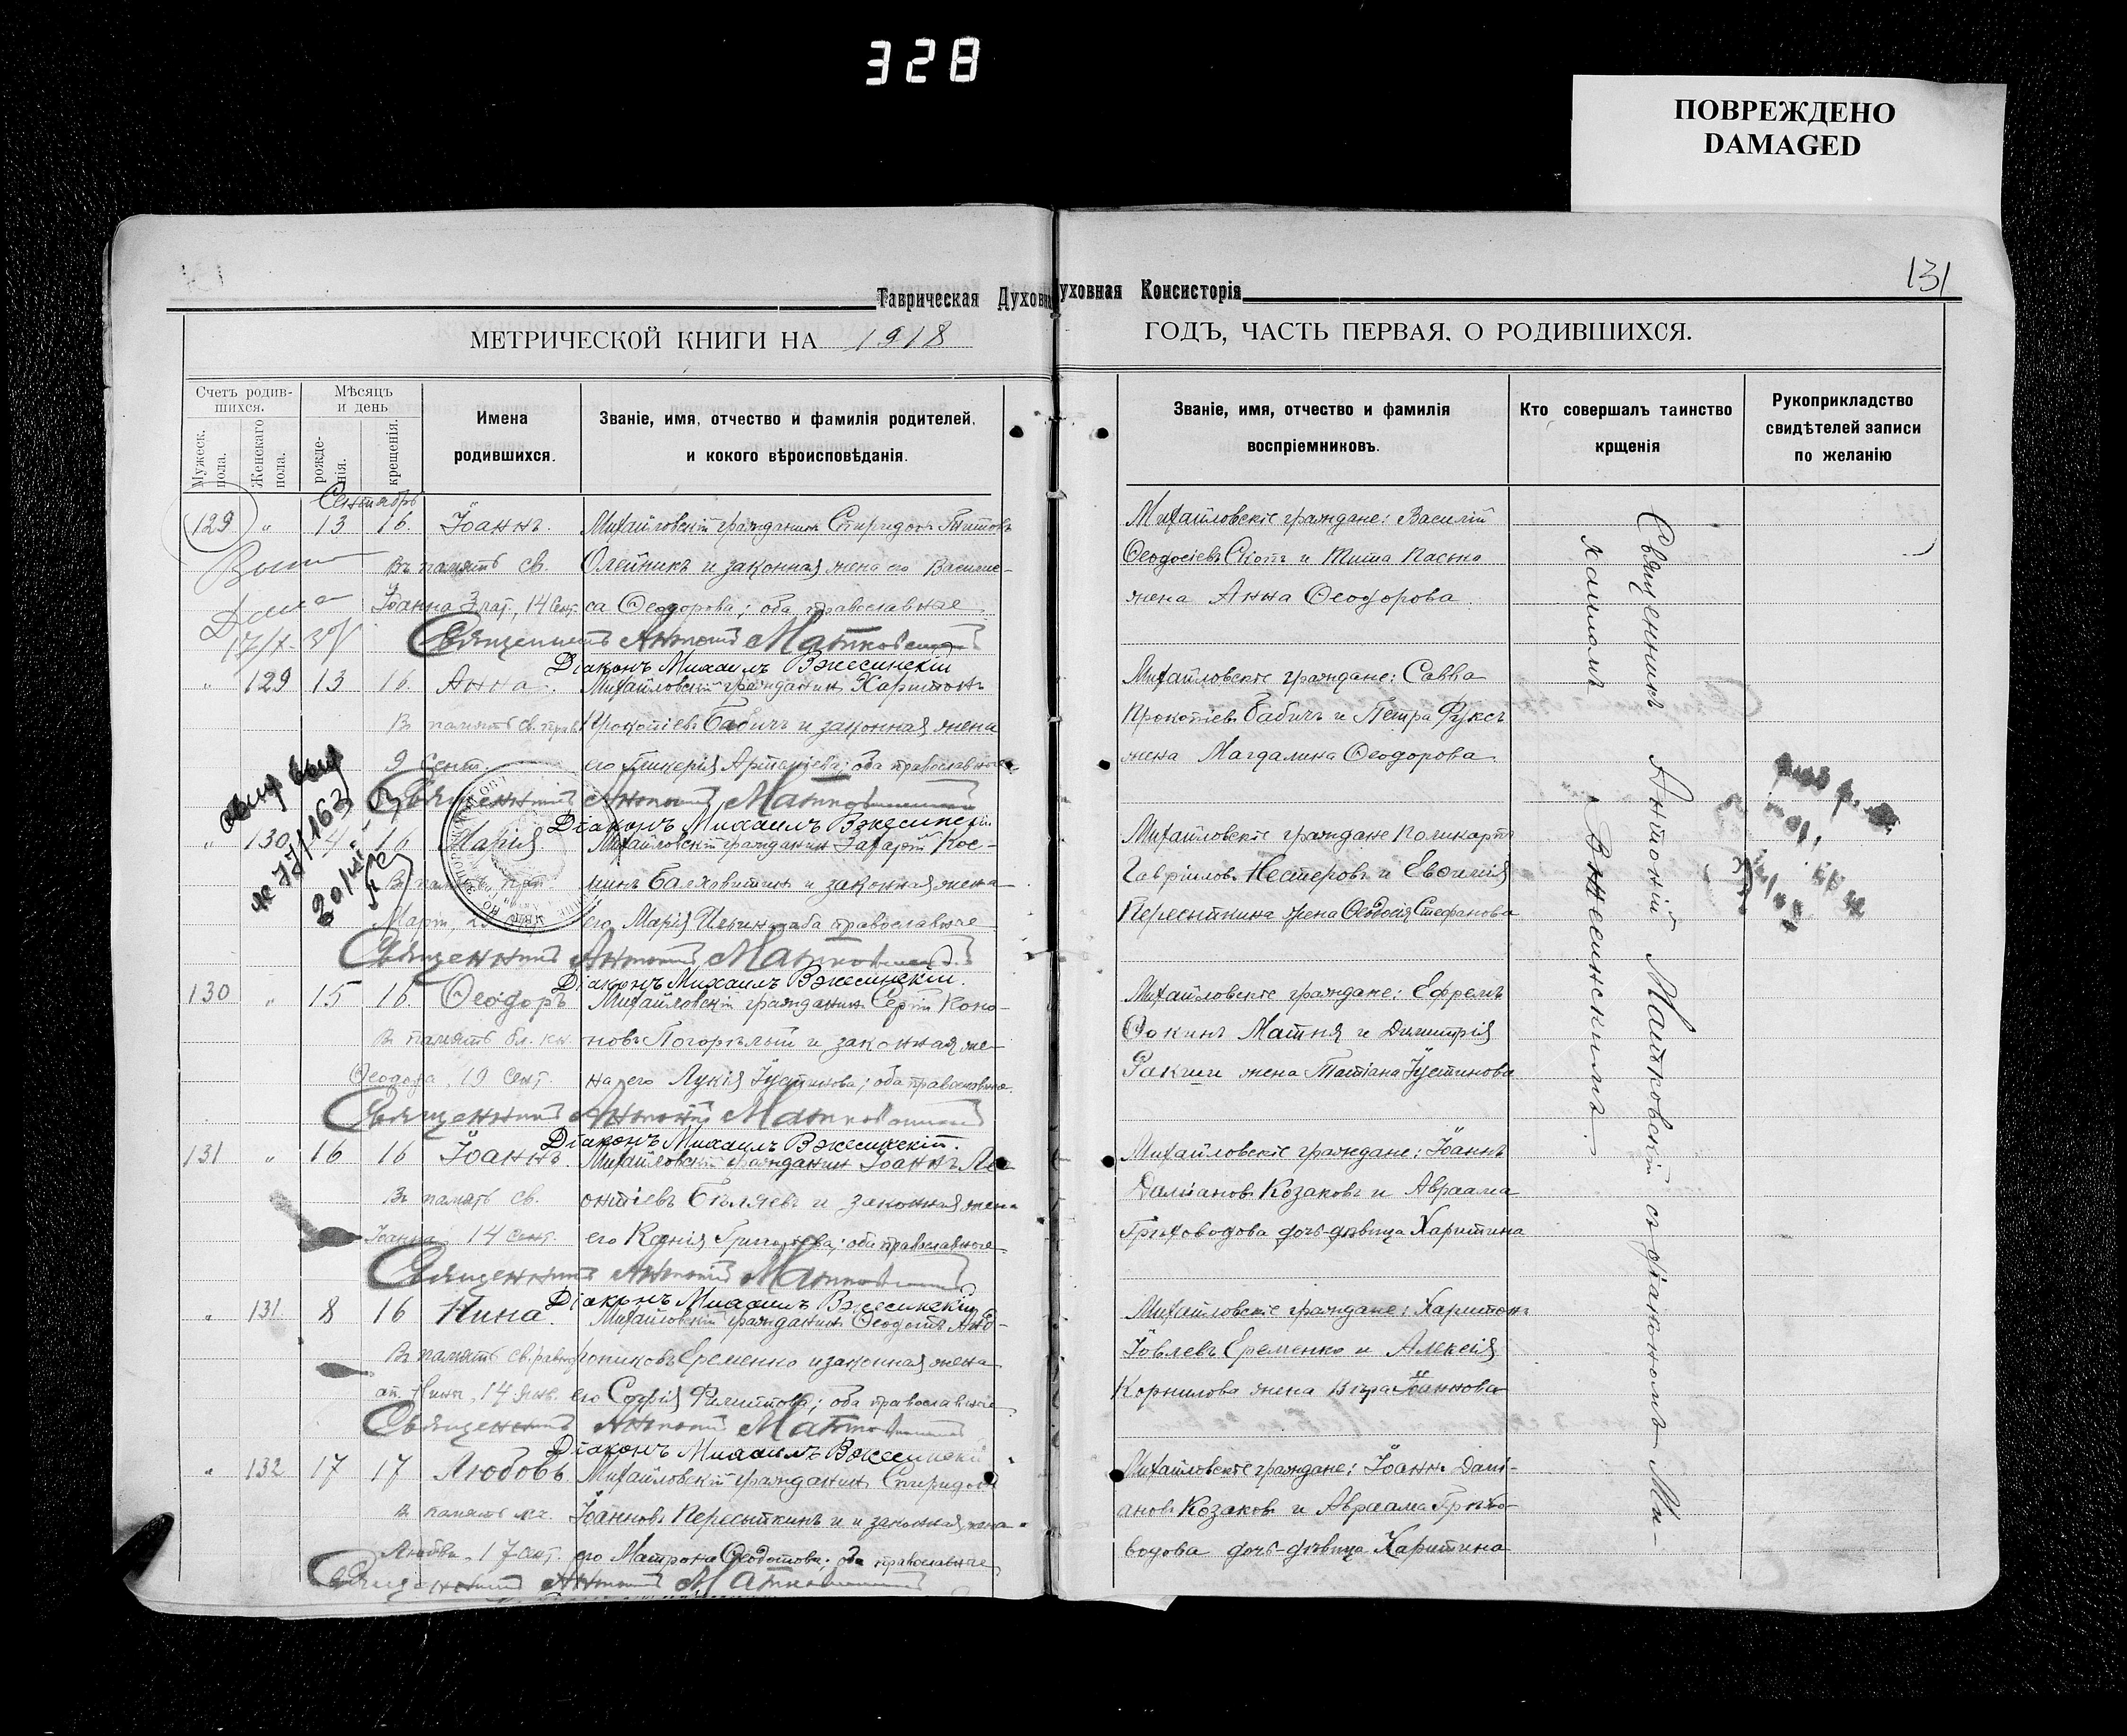 328
ПОВРЕЖДЕНО
DAMAGED
131
Таврическая Духовн
уховная Консисторія
МЕТРИЧЕСКОЙ КНИГИ НА 1918
ГОДЪ, ЧАСТЬ ПЕРВАЯ. О РОДИВШИХСЯ.
Счетъ родив-
шихся.
Мужеск. пола.
Женскаго пола.
Мѣсяцъ
и день
рожде-
нія.
крещенія.
Имена
родившихся.
Званіе, имя, отчество и фамилія родителей,
и кокого вѣроисповѣданія.
Званіе, имя, отчество и фамилія
воспріемниковъ.
Кто совершалъ таинство
крщенія
Рукоприкладство
свидѣтелей записи
по желанію
Сентябрь
129 " 13 16 Іоаннъ. Михайловскій гражданинъ Спиридонъ Титовъ
Въ память св. Олейникъ и законная жена его Василис-
Іоанна Злат., 14 Сент. са Ѳеодорова; оба православные
Священникъ Антоній Матковскій
Діаконъ Михаилъ Вжесинскій
Михайловскіе граждане: Василій
Ѳеодосіевъ Скопъ и Тита Пасько
жена Анна Ѳеодорова
" 129 13 16 Анна. Михайловскій гражданинъ Харитонъ
Въ память св. прав. Прокопіевъ Бабичъ и законная жена
9 Сент. его Гликерія Арсеніева; оба православные
Священникъ Антоній Матковскій
Діаконъ Михаилъ Вжесинскій
Михайловскіе граждане: Савва
Прокопіевъ Бабичъ и Петра Фуксъ
жена Магдалина Ѳеодорова
" 130 14 16 Марія Михайловскій гражданинъ Захарій Кос-
минъ и законная жена
его Марія оба православные
Священникъ Антоній Матковскій
Діаконъ Михаилъ Вжесинскій.
Михайловскіе граждане Поликарпъ
Гавріиловъ Нестеровъ и Евѳимія
Пересыпкина жена Ѳеодосія Стефанова
130 " 15 16 Ѳеодоръ Михайловскій гражданинъ Сергій Коно-
В память бл. кн. новъ Погорѣлый и законная же-
Ѳеодора, 19 Сент. на его Лукія Іустинова; оба православные
Священникъ Антоній Матковскій
Діаконъ Михаилъ Вжесинскій.
Михайловскіе граждане: Ефремъ
Ѳокинъ Матня и Димитрія
жена Татіана Іустинова
131 " 16 16 Іоаннъ. Михайловскій гражданинъ Іоаннъ Ле-
Въ память св. онтіевъ Бѣляевъ и законная жена
Іоанна 14 Сент. его Ксенія Григорьева; оба православные
Священникъ Антоній Матковскій
Діаконъ Михаилъ Вжесинскій
Михайловскіе граждане: Іоаннъ
Даміановъ Козаковъ и Авраама
Грибоводова дочь-дѣвица Харитина
" 131 8 16 Нина. Михайловскій гражданинъ Ѳеодотъ Анд-
Въ память св. равно- рониковъ Еременко и законная жена
ап. Нины, 14 Янв. его Софія Филиппова; оба православные
Священникъ Антоній Матковскій
Діаконъ Михаилъ Вжесинскій
Михайловскіе граждане: Харитонъ
Іовлевъ Еременко и Алексія
Корнилова жена Вѣра Іоаннова
" 132 17 17 Любовь. Михайловскій гражданинъ Спиридонъ
В память мч. Іоанновъ Пересыпкинъ и и законная жена
Любви, 17 сент. его Матрона Ѳеодотова; оба православные
Священникъ Антоній Матковскій
Михайловскіе граждане: Іоаннъ Дамі-
ановъ Козаковъ и Авраама Грибо-
водова дочь-дѣвица Харитина
Священникъ Антоній Матковскій съ діакономъ Ми-
хаиломъ Вжесинскимъ.